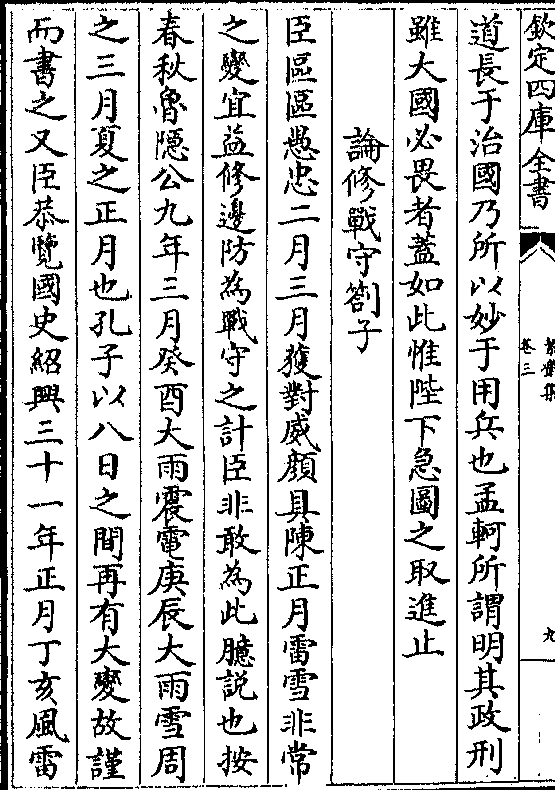 欽定四庫全書
卷三
九
道長于治國乃所以妙于用兵也孟軻所謂明其政刑
雖大國必畏者蓋如此惟陛下急圖之取進止
論修戰守劄子
臣區區愚忠二月三月獲對威顔具陳正月雷雪非常
之變宜益修邊防為戰守之計臣非敢為此臆説也按
春秋魯隱公九年三月癸酉大雨震電庚辰大雨雪周
之三月夏之正月也孔子以八日之間再有大變故謹
而書之又臣恭覽國史紹興三十一年正月丁亥風雷